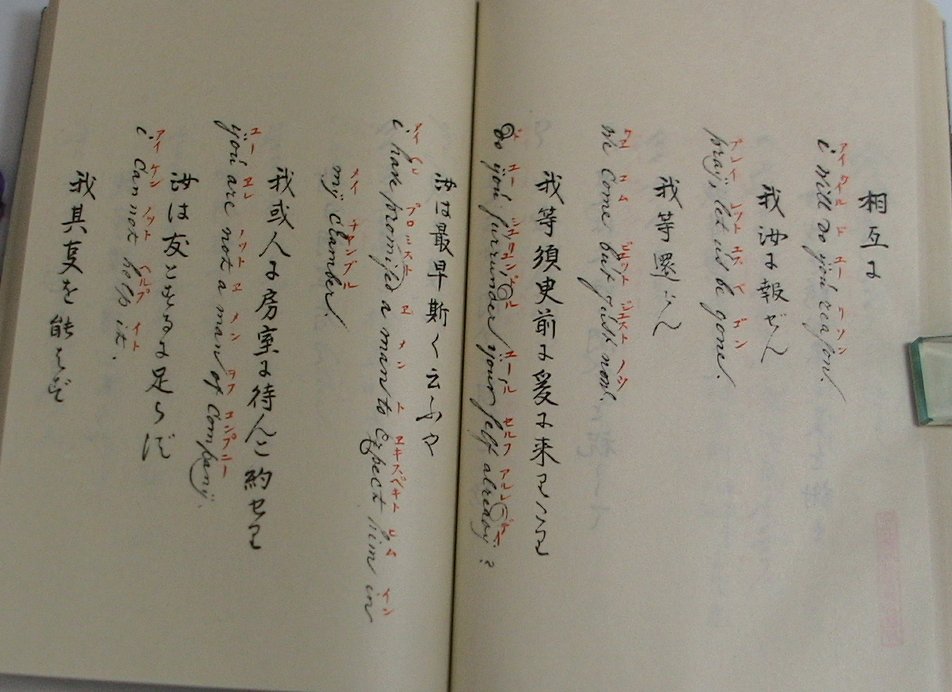 相互に
アイ ウイル ジ ユー リソン
i will do you reason.
我汝に報ぜん
プレイ レット エス ベ ゴン
pray, let us be gone.
我等還らん
ウエ コム ジェスト ノウ
we come but just now.
我等須臾前に爰に来
ド ユー ユール セルフ
do you surrunder your self already?
汝は最早斯く云ふや
アイ プロミスト エ メン ト エキスペキト ヒム イン
i have promised a man to expect him in
メイ チャンブル
my chamber.
我或人に房室に待んと約せり
ユー エレ ノット エ メン ヲフ コンプニー
you are not a man of company.
汝は友とするに足らず
アイ ケン ノット ヘルプ イト
i can not help it.
我其事を能はず